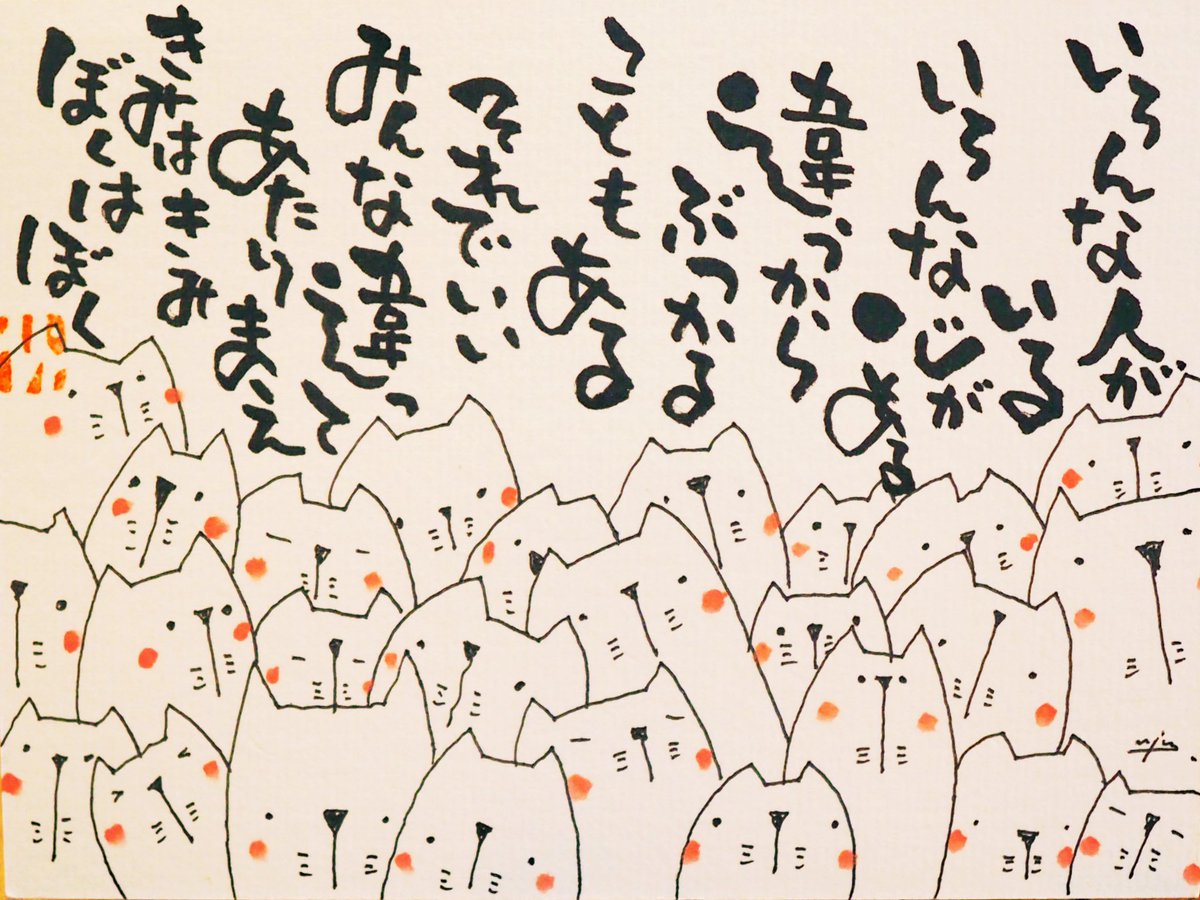 いろんな人が
いる
いろんな心が
ある
違うから
ぶつかる
こともある
それでいい
みんな違って
あたりまえ
きみはきみ
ぼくはぼく